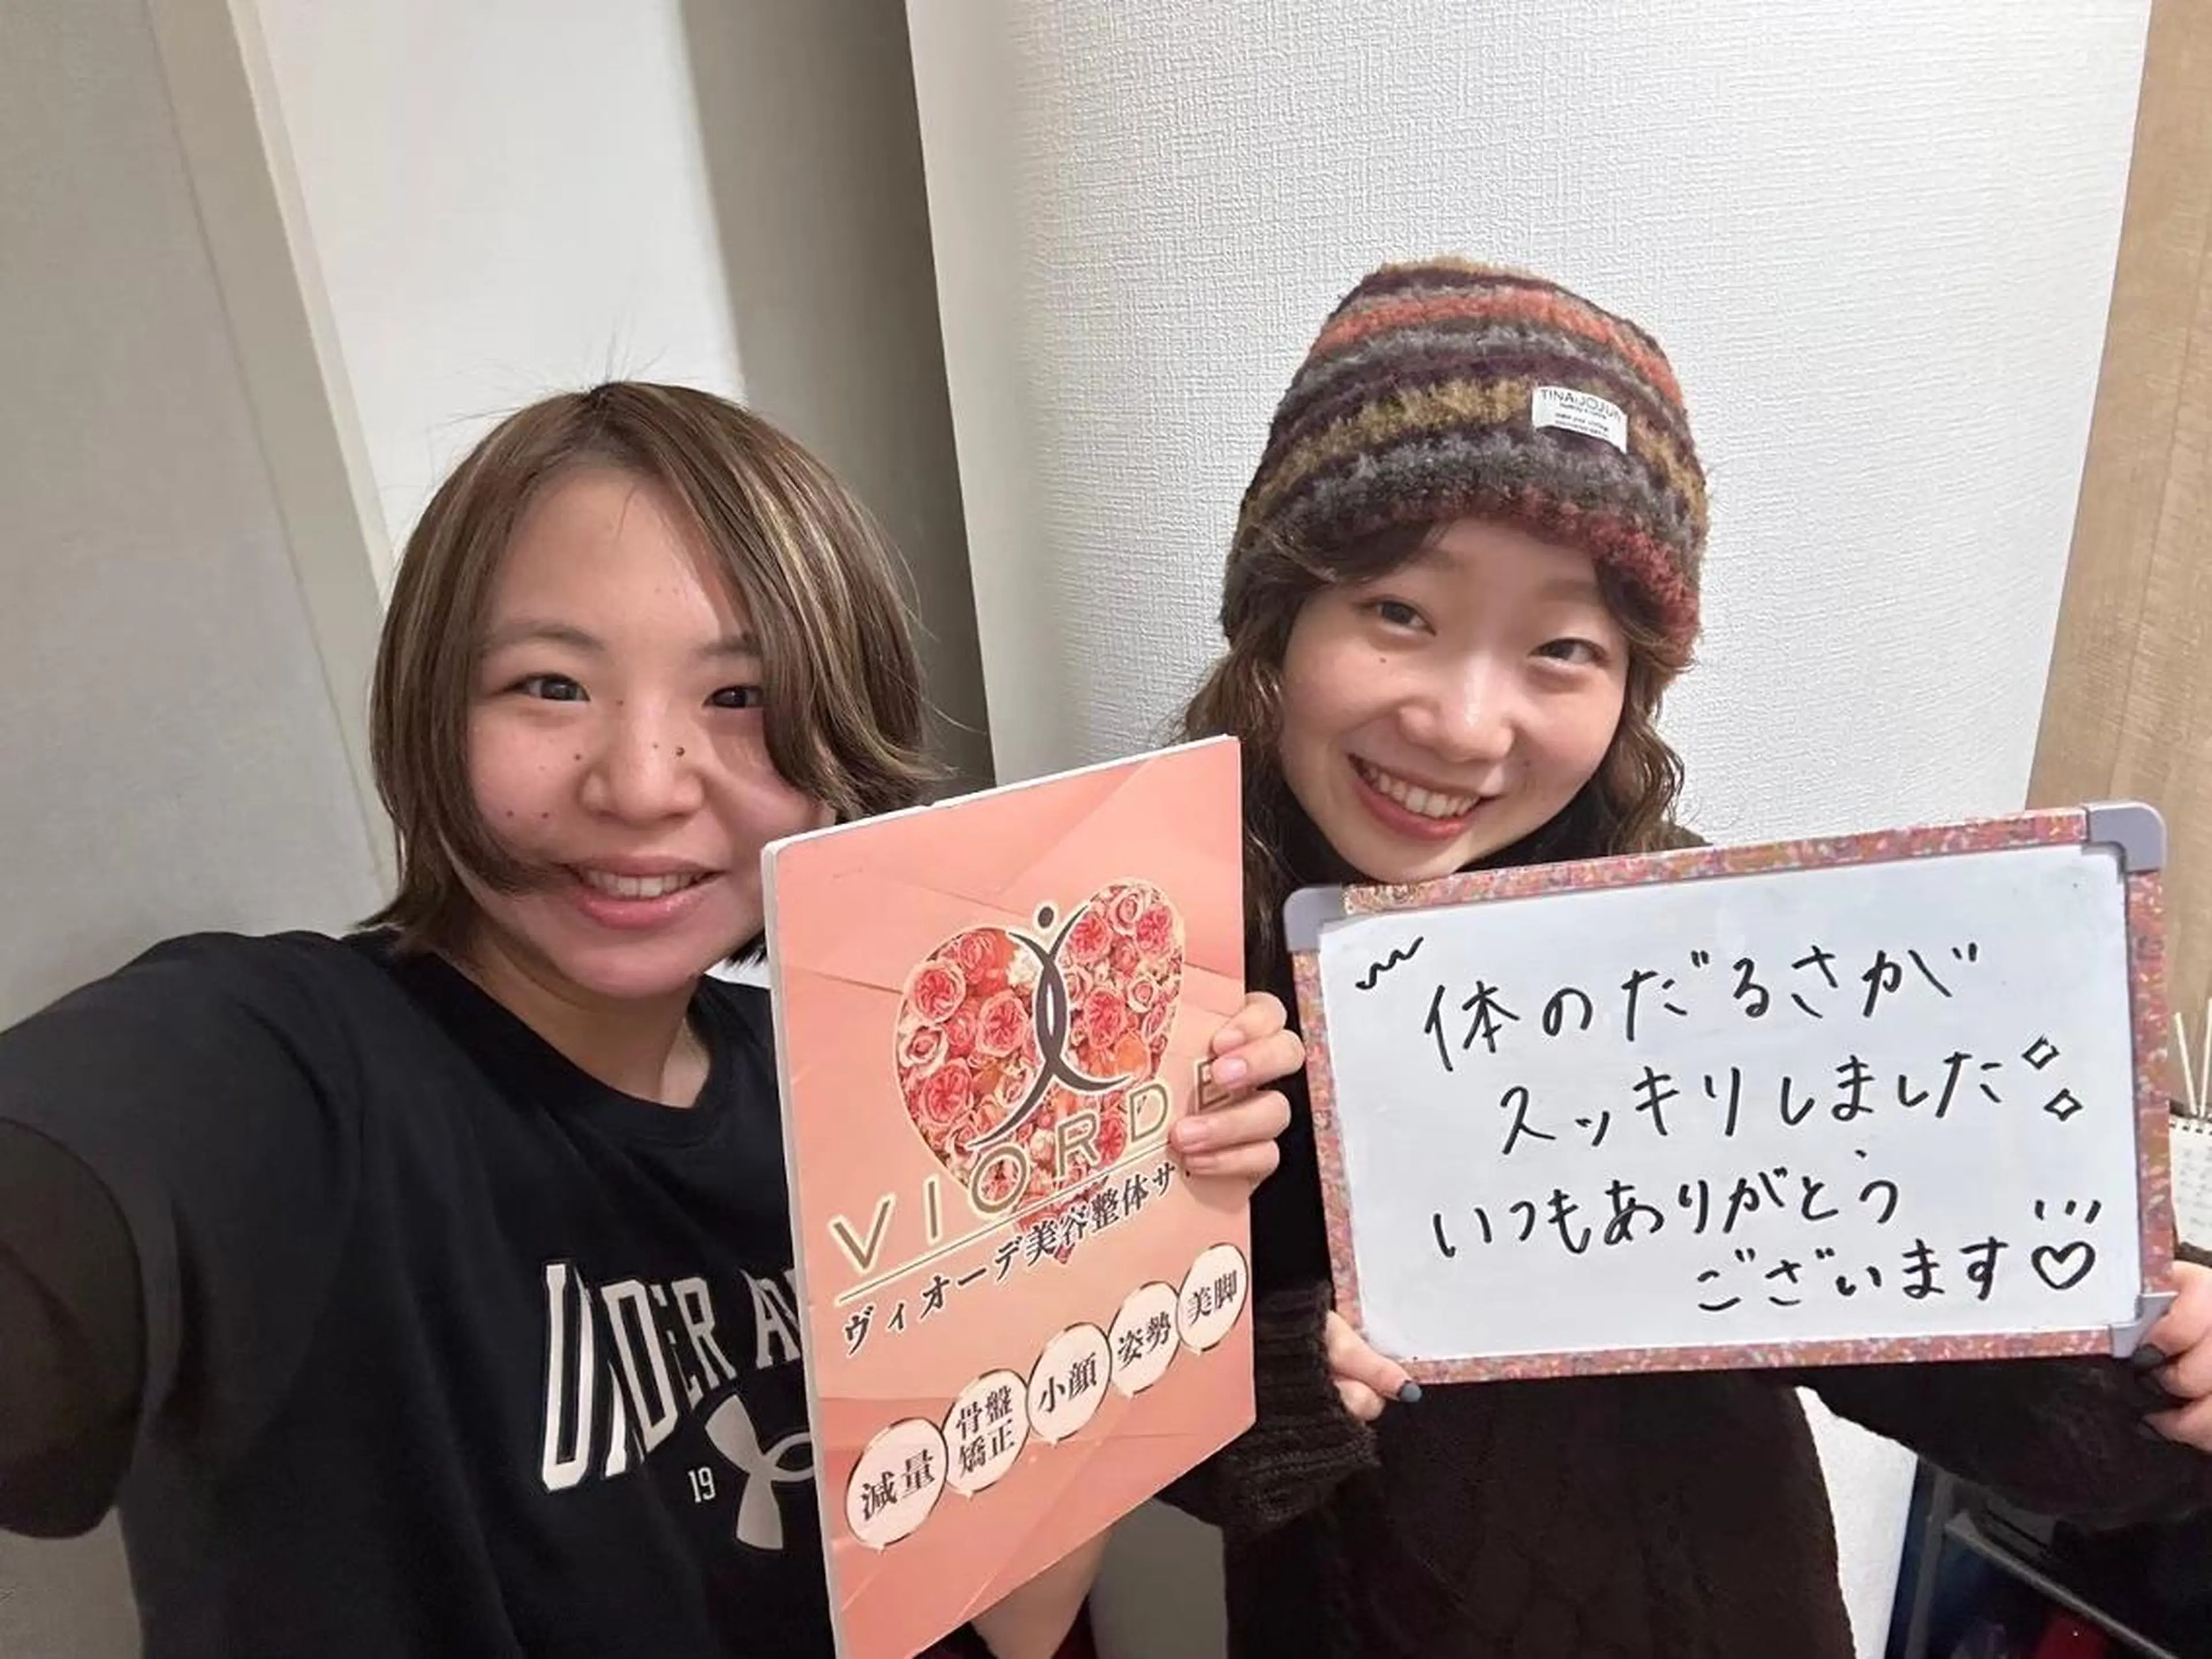 TINA:JOJUN
UNDER A
19
VIORDE
ヴィオーデ美容整体サ
減量
骨盤
矯正
小顔
姿勢
美脚
体のだるさが
スッキリしました
いつもありがとう
ございます♡